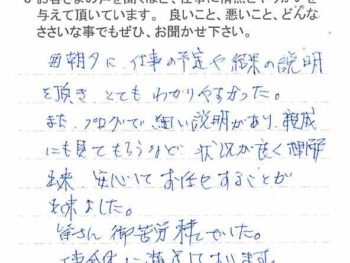 お客さまの声を聞くほど、仕事に情熱とやりがいを
与えて頂いています。 良いこと、悪いこと、どんな
ささいな事でもぜひ、お聞かせ下さい。
毎朝夕に、仕事の予定や結果の説明
を頂き とても わかりやすかった。
また、ブログで 細い説明があり、親戚
にも見てもらうなど 状況が良く理解
出来、安心して お任せすることが
出来ました。
皆さん 御苦労様でした。
に満足しています。